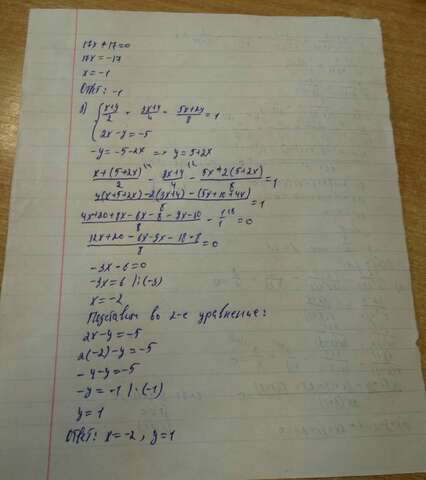 17x+17=0
17x=-17
x=-1
Ответ: -1
{ (x+y)/2 - (3x+4)/4 - (5x+2y)/8 =1
2x-y=-5
-y=-5-2x => y=5+2x
(x+(5+2x))/2 - (3x+4)/4 - (5x+2(5+2x))/8 =1
(4(x+5+2x)-2(3x+4)-(5x+10+4x))/8 =1
(4x+20+8x-6x-8-9x-10)/8 - 1/1 =0
(12x+20-6x-9x-18-8)/8 =0
-3x-6=0
-3x=6 |:(-3)
x=-2
Подставим во 2-е уравнение:
2x-y=-5
2(-2)-y=-5
-4-y=-5
-y=-1 |·(-1)
y=1
Ответ: x=-2, y=1